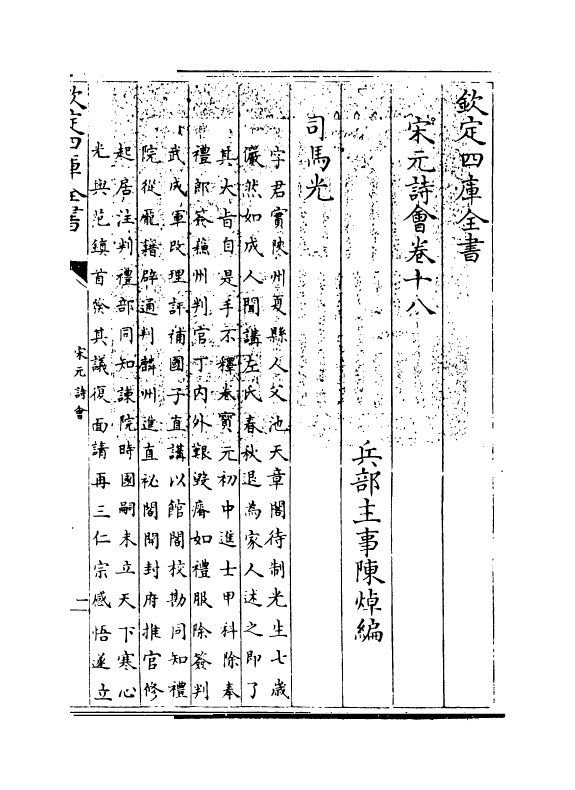 欽定四庫全書
宋元詩會卷十八
兵部主事陳焯編
司馬光
字君實陜州夏縣人父池天章閣待制光生七歲
儼然如成人聞講左氏春秋退為家人述之即了
其大旨自是手不釋卷寶元初中進士甲科除奉
禮郎簽蘇州判官丁內外艱毀瘠如禮服除簽判
武成軍改理評補國子直講以館閣校勘同知禮
院從龐籍辟通判麟州進直祕閣開封府推官修
起居注判禮部同知諫院時國嗣未立天下寒心
光與范鎮首發其議復面請再三仁宗感悟遂立
欽定四庫全書
宋元詩會
一